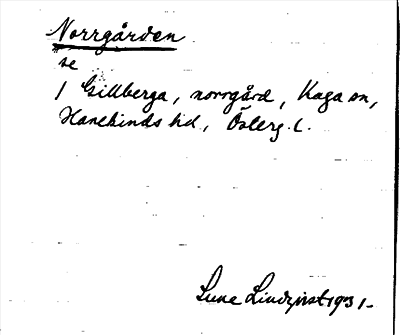 Norrgården
se
1 Gillberga, norrgård, Kaga sn,
Hanekinds hd, Österg. l.
Sune Lindqvist 1931-